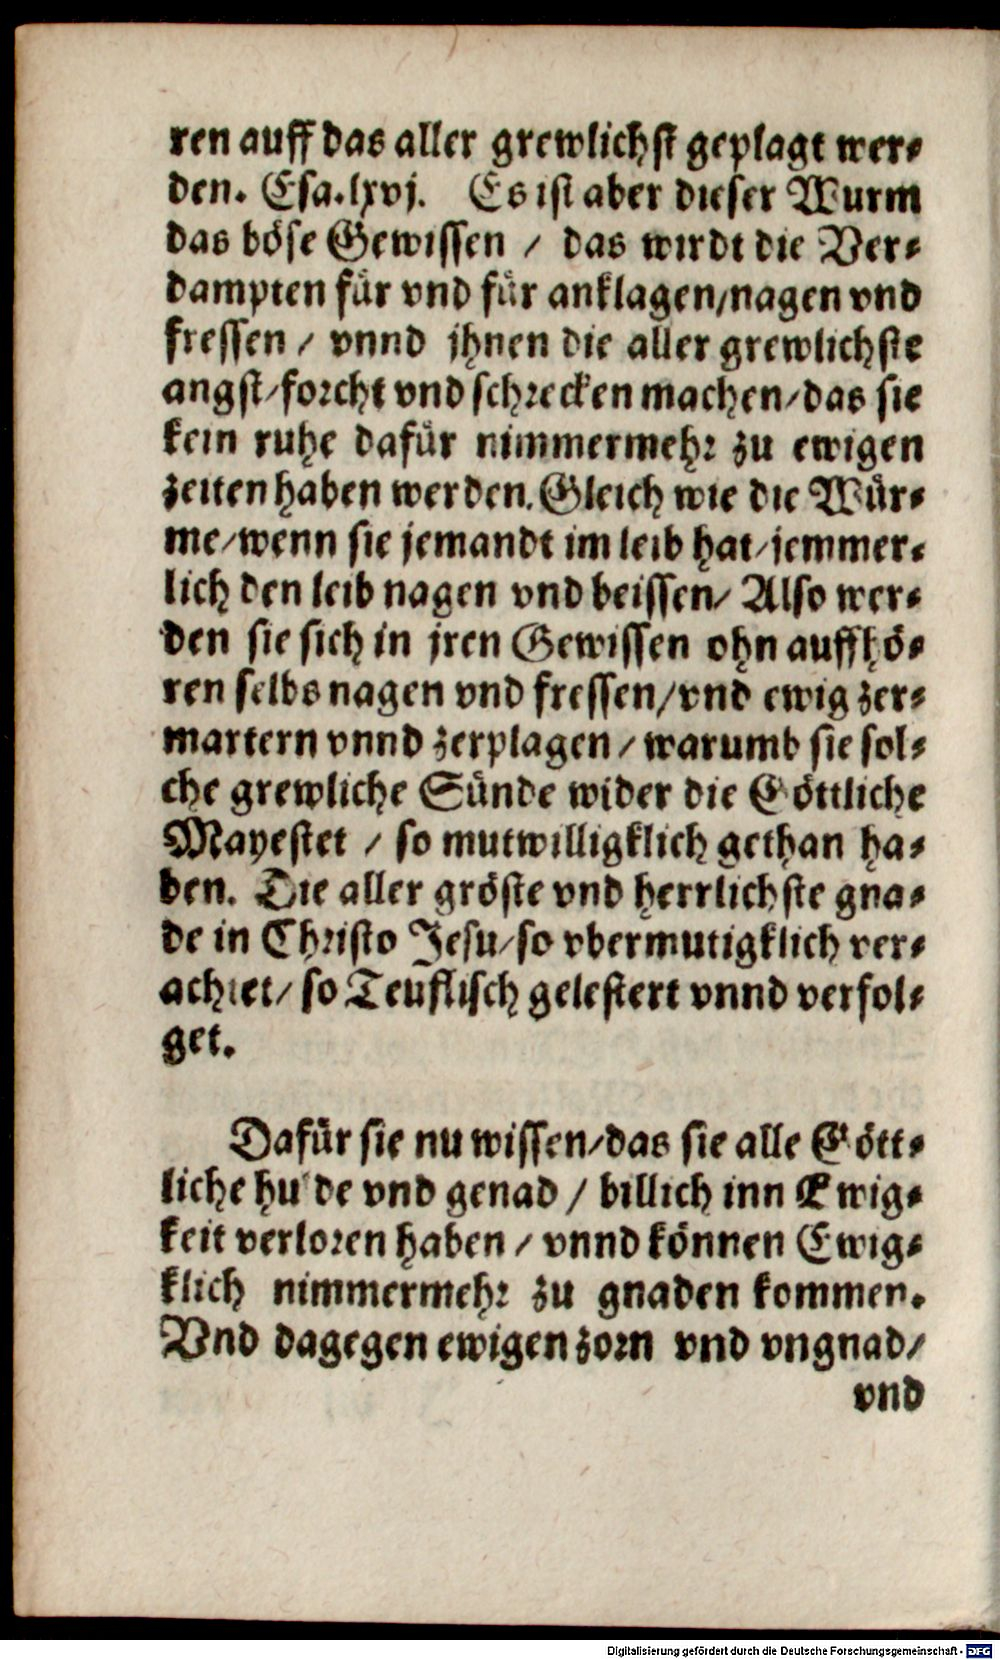 ren auff das aller grewlichst geplagt wer⸗
den. Esa.lxvj. Es ist aber dieser Wurm
das böse Gewissen / das wirdt die Ver⸗
dampten für vnd für anklagen/nagen vnd
fressen / vnnd jhnen die aller grewlichste
angst/forcht vnd schrecken machen/das sie
kein ruhe dafür nimmermehr zu ewigen
zeiten haben werden. Gleich wie die Wür⸗
me/wenn sie jemandt im leib hat/jemmer⸗
lich den leib nagen vnd beissen/ Also wer⸗
den sie sich in jren Gewissen ohn auffhö⸗
ren selbs nagen vnd fressen/vnd ewig zer⸗
martern vnnd zerplagen / warumb sie sol⸗
che grewliche Sünde wider die Göttliche
Mayestet / so mutwilligklich gethan ha⸗
ben. Die aller gröste vnd herrlichste gna⸗
de in Christo Jesu/so vbermutigklich ver⸗
achtet/ so Teuflisch gelestert vnnd verfol⸗
get.
Dafür sie nu wissen/das sie alle Gött⸗
liche hulde vnd genad / billich inn Ewig⸗
keit verloren haben / vnnd können Ewig⸗
klich nimmermehr zu gnaden kommen.
Vnd dagegen ewigen zorn vnd vngnad/
vnd
Digitalisierung gefördert durch die Deutsche Forschungsgemeinschaft - DFG